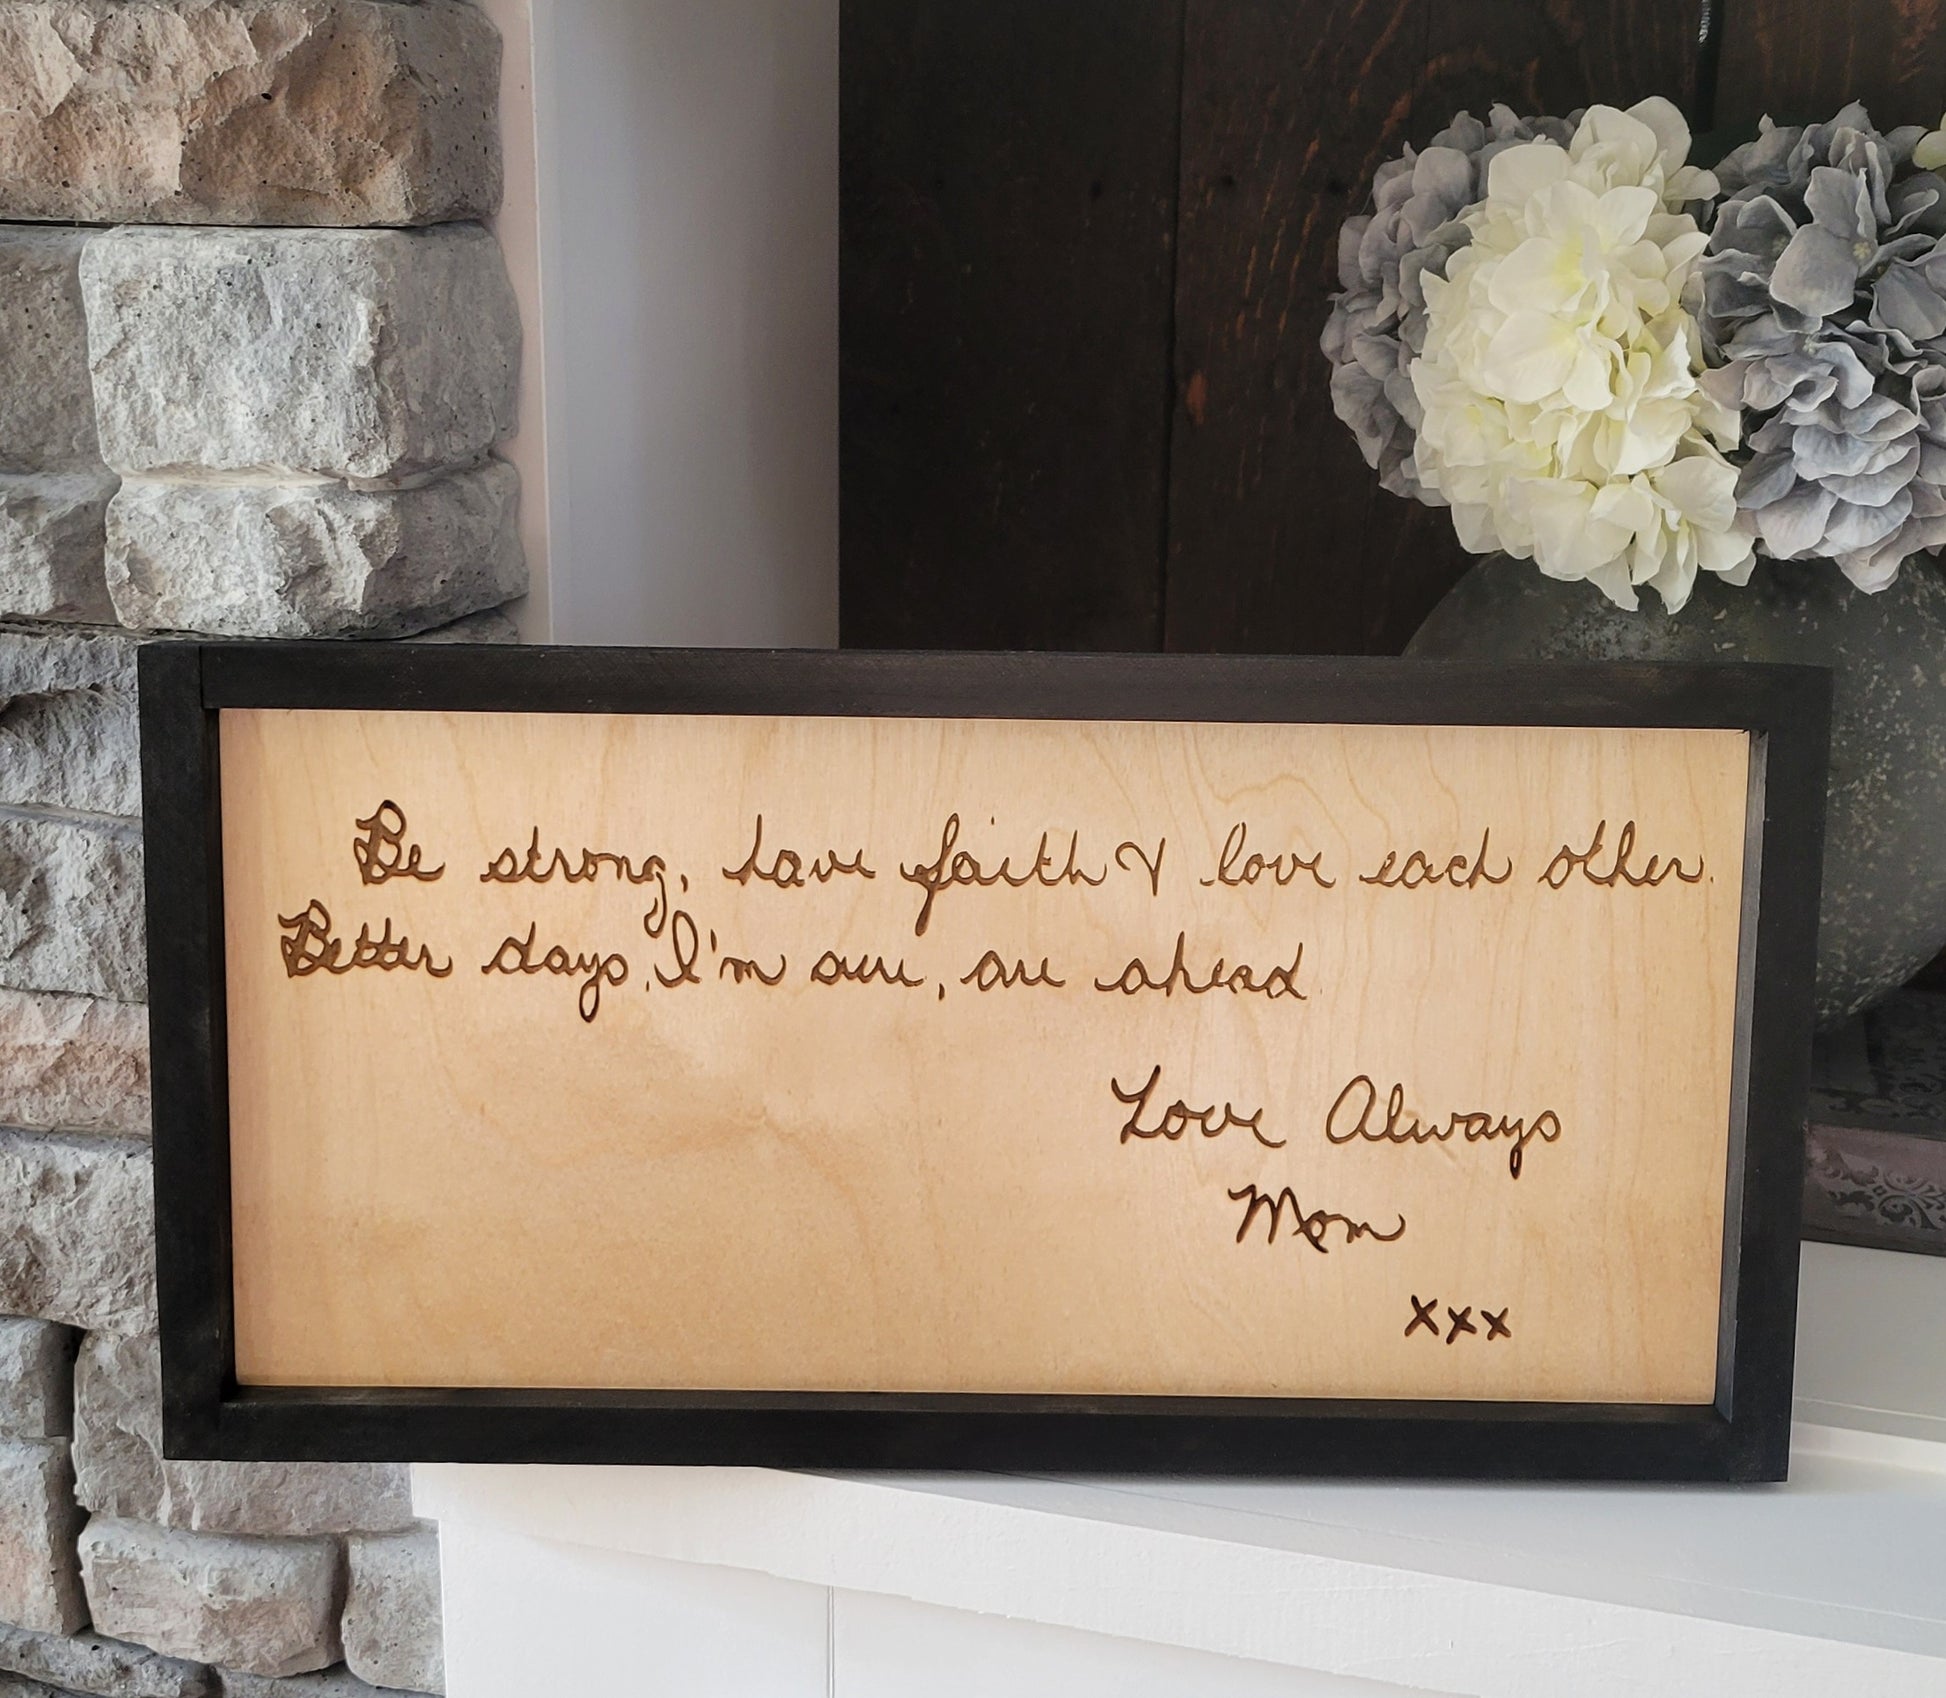 Be strong, have faith & love each other.
Better days, I'm sure, are ahead.
Love Always
Mom
xxx